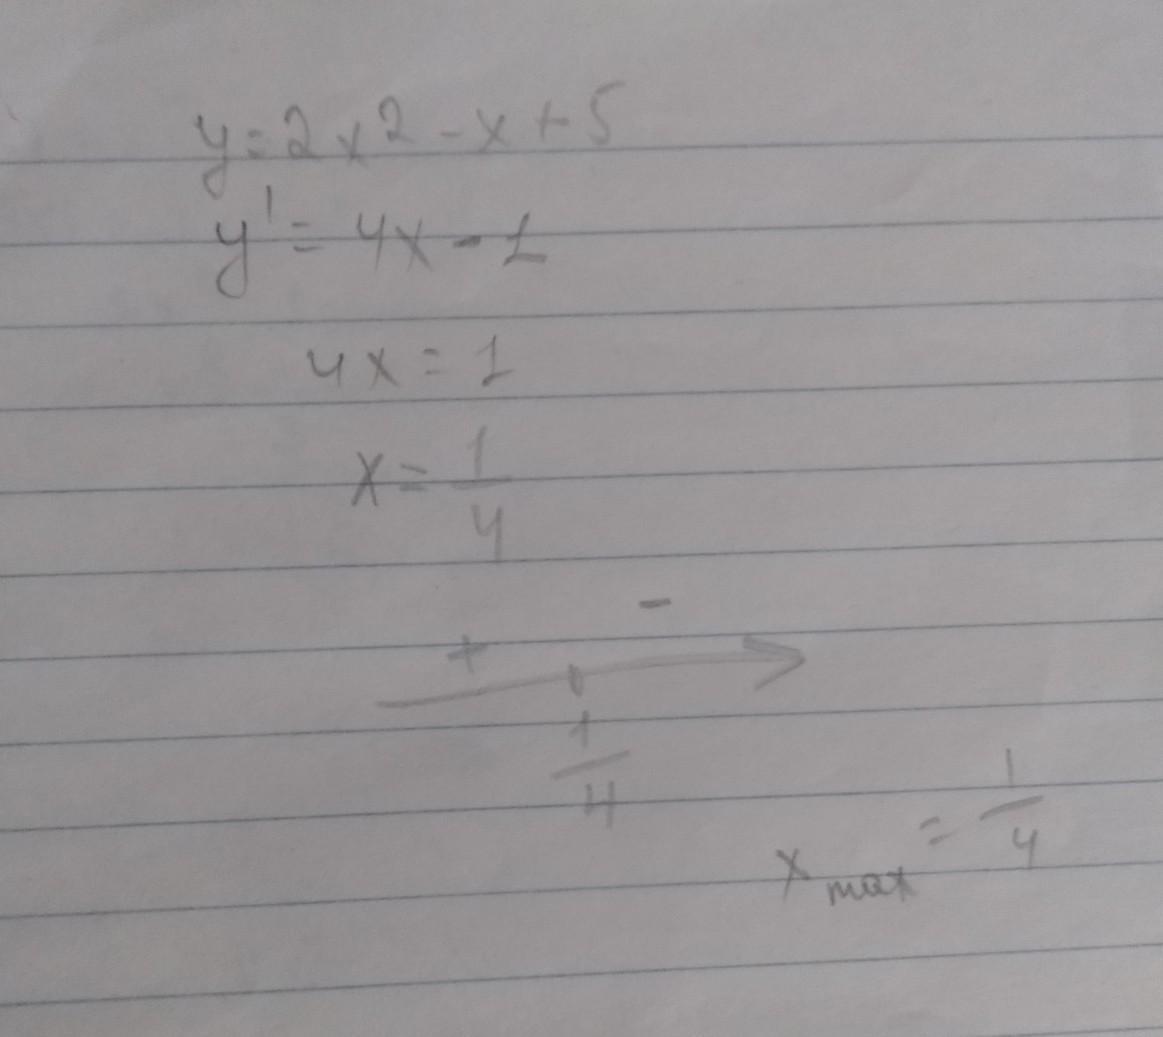 y=2x²-x+5
y'=4x-1
4x=1
x=1/4
+ -
1/4
x max = 1/4